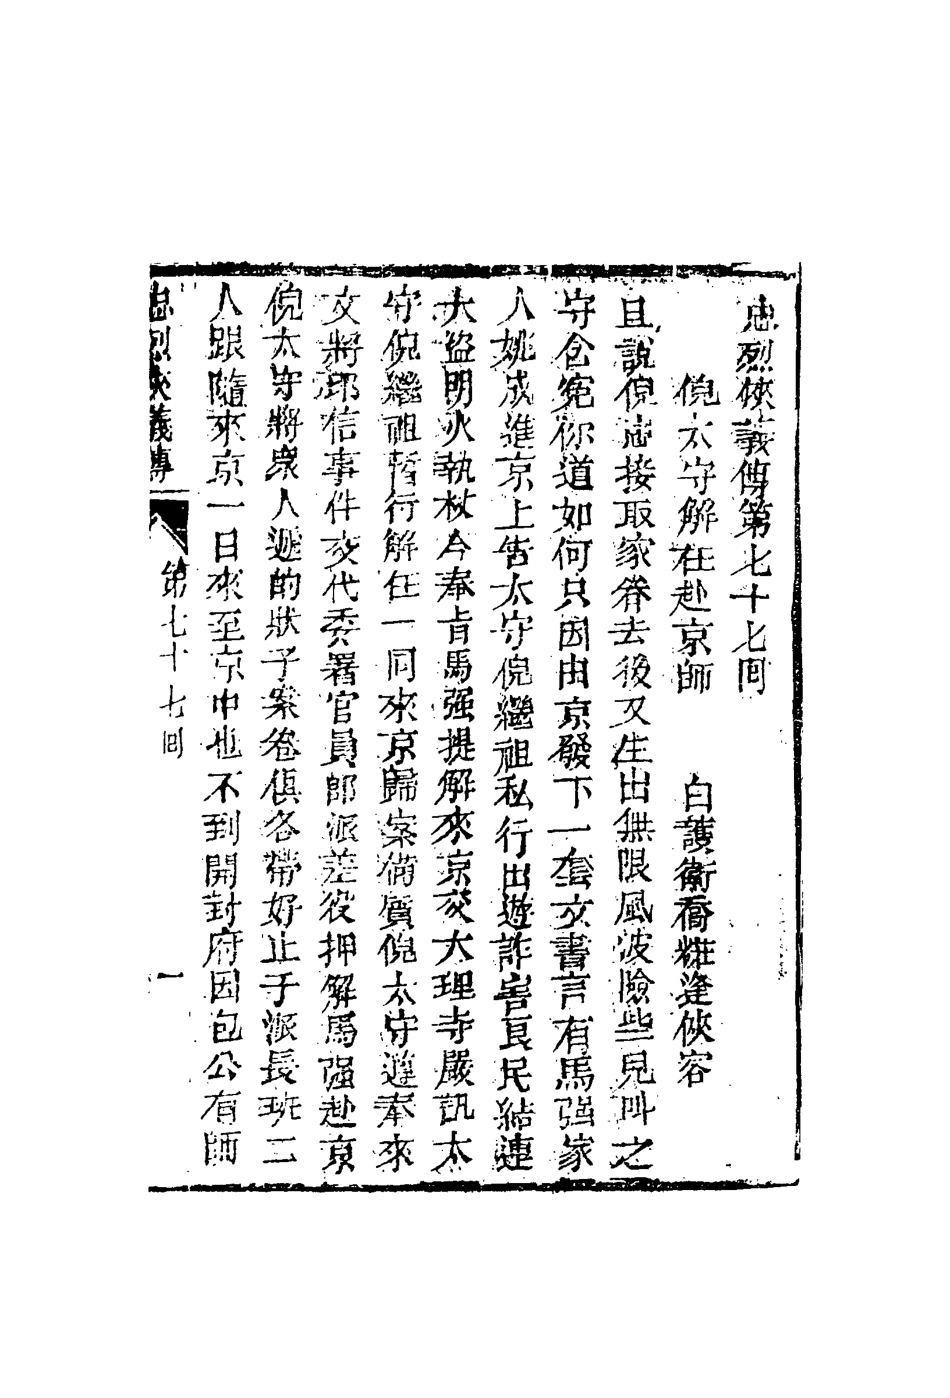 忠烈俠義傳第七十七回
倪太守解任赴京師　白護衛喬粧逢俠客
且說倪忠接取家眷去後又生出無限風波險些兒叫太
守含寃你道如何只因由京發下一套文書言有馬强家
人姚成進京上告太守倪繼祖私行出遊詐害良民結連
大盜明火執杖今奉旨馬强提解來京交大理寺嚴訊太
守倪繼祖暫行解任一同來京歸案備質倪太守遵奉來
文將印信事件交代委署官員即派差役押解馬强赴京
倪太守將衆人遞的狀子案卷俱各帶好止于派長班二
人跟隨來京一日來至京中也不到開封府因包公有師
忠烈俠義傳　第七十七回　一